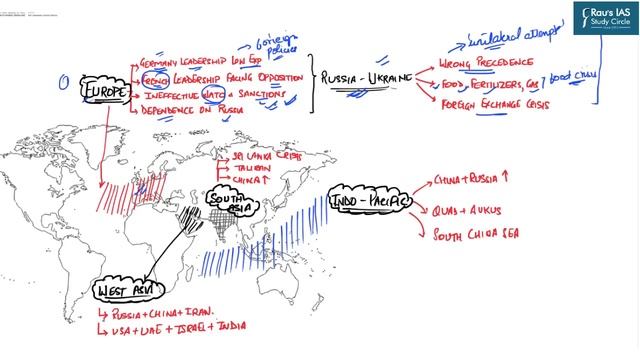 Rau's IAS
Study Circle
foreign policies
"unilateral attempt"
① EUROPE
GERMANY LEADERSHIP LOW EXP
FRENCH LEADERSHIP FACING OPPOSITION
INEFFECTIVE NATO & SANCTIONS
DEPENDENCE ON RUSSIA
RUSSIA-UKRAINE
WRONG PRECEDENCE
FOOD, FERTILIZERS, GAS / food crisis
FOREIGN EXCHANGE CRISIS
SRI LANKA CRISIS
TALIBAN
CHINA ↑
SOUTH
ASIA
INDO-PACIFIC
CHINA+RUSSIA ↑
QUAD + AUKUS
SOUTH CHINA SEA
WEST ASIA
RUSSIA+CHINA+IRAN.
USA+UAE+ISRAEL+INDIA